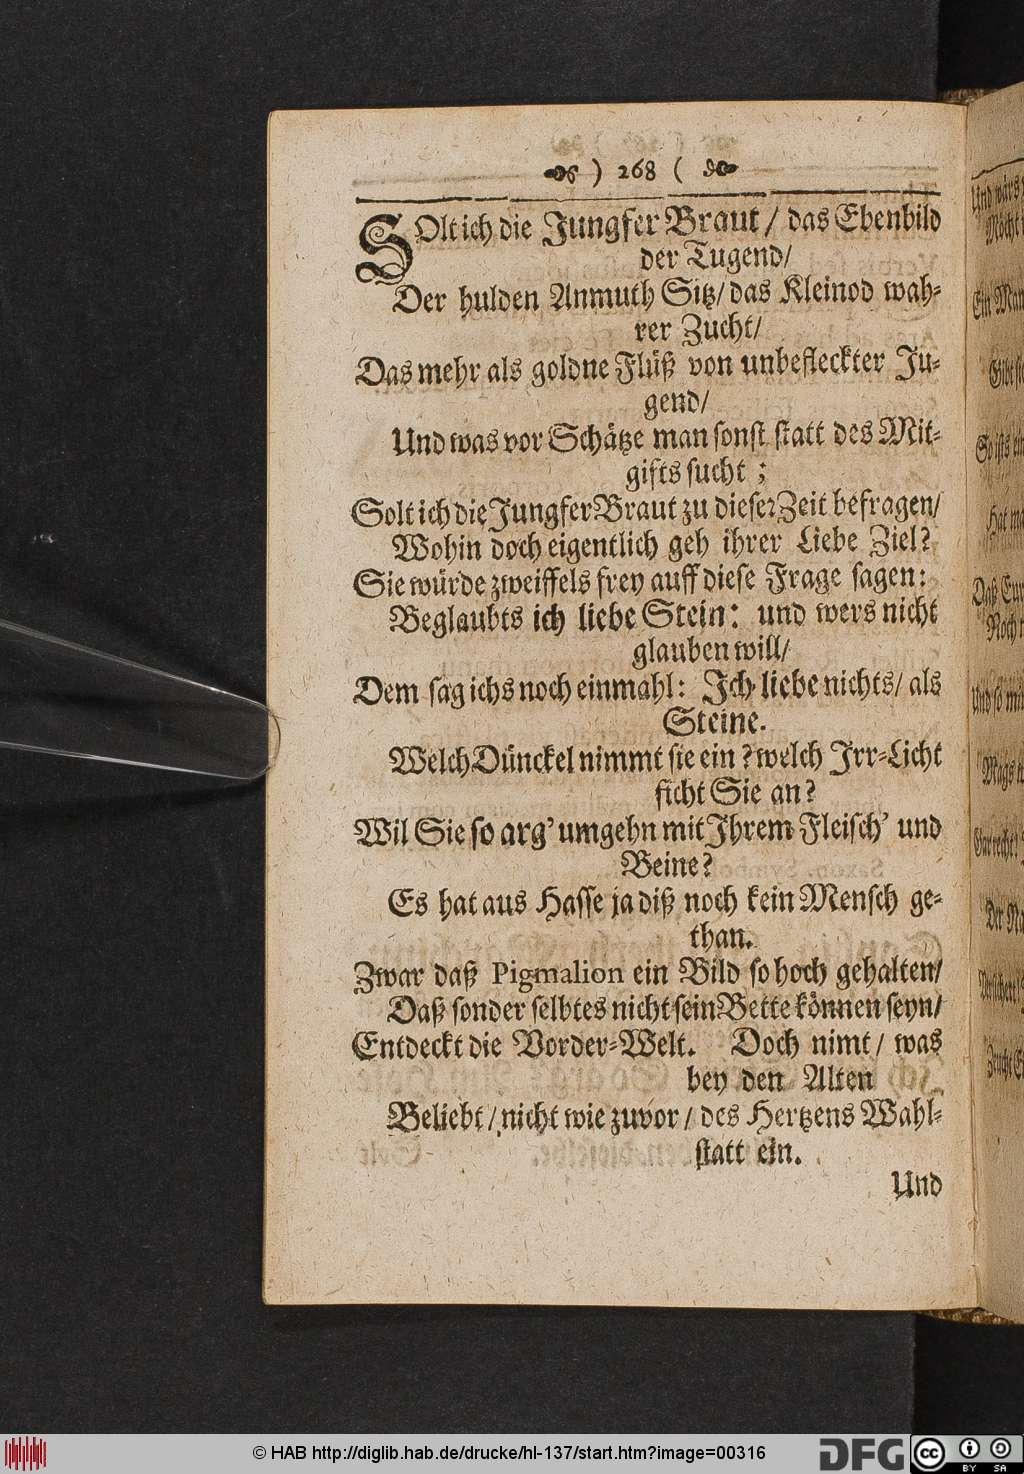 ) 268 (
SOlt ich die Jungfer Braut / das Ebenbild
der Tugend/
Der hulden Anmuth Sitz/ das Kleinod wah-
rer Zucht/
Das mehr als goldne Flüß von unbefleckter Ju-
gend/
Und was vor Schätze man sonst statt des Mit-
gifts sucht ;
Solt ich die Jungfer Braut zu dieser Zeit befragen/
Wohin doch eigentlich geh ihrer Liebe Ziel?
Sie würde zweiffels frey auff diese Frage sagen:
Beglaubts ich liebe Stein: und wers nicht
glauben will/
Dem sag ichs noch einmahl: Ich liebe nichts/ als
Steine.
Welch Dünckel nimmt sie ein ? welch Irr-Licht
ficht Sie an?
Wil Sie so arg' umgehn mit Ihrem Fleisch' und
Beine?
Es hat aus Hasse ja diß noch kein Mensch ge-
than.
Zwar daß Pigmalion ein Bild so hoch gehalten/
Daß sonder selbtes nicht sein Bette können seyn/
Entdeckt die Vorder-Welt. Doch nimt / was
bey den Alten
Beliebt / nicht wie zuvor / des Hertzens Wahl-
statt ein.
Und
© HAB http://diglib.hab.de/drucke/hl-137/start.htm?image=00316
DFG
cc
BY SA